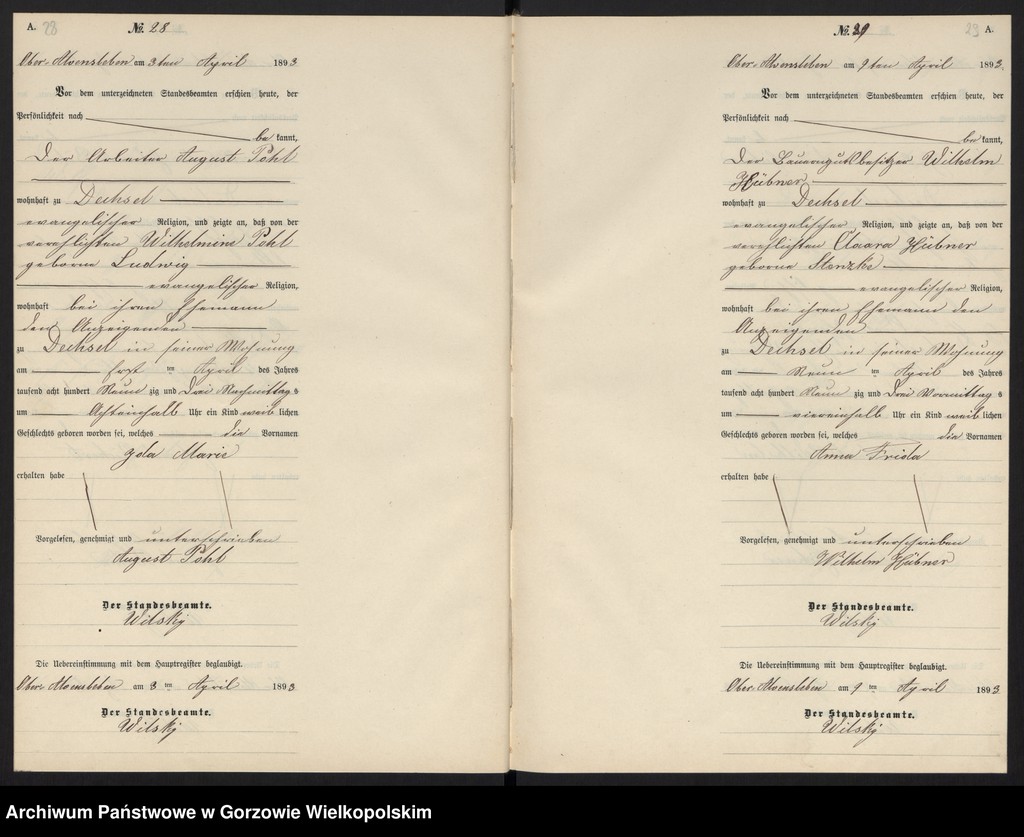 A. 28 № 28
Ober-Alvensleben am 3ten April 1893
Vor dem unterzeichneten Standesbeamten erschien heute, der
Persönlichkeit nach
bekannt,
Der Arbeiter August Pohl
wohnhaft zu Dechsel
evangelischer Religion, und zeigte an, daß von der
verehlichten Wilhelmine Pohl
geborne Ludwig
evangelischer Religion,
wohnhaft bei ihren Ehemann
den Anzeigenden
zu Dechsel in seiner Wohnung
am ersten April des Jahres
tausend acht hundert Neunzig und Drei Nachmittags
um Achteinhalb Uhr ein Kind weiblichen
Geschlechts geboren worden sei, welches die Vornamen
Marie
erhalten habe
Vorgelesen, genehmigt und unterschrieben
August Pohl
Der Standesbeamte.
Wilsky
Die Uebereinstimmung mit dem Hauptregister beglaubigt.
Ober-Alvensleben am 3 ten April 1893
Der Standesbeamte.
Wilsky
№ 29 29 A.
Ober-Alvensleben am 9ten April 1893.
Vor dem unterzeichneten Standesbeamten erschien heute, der
Persönlichkeit nach
bekannt,
Der Bauerngutsbesitzer Wilhelm
Hübner
wohnhaft zu Dechsel
evangelischer Religion, und zeigte an, daß von der
verehlichten Hübner
geborne
evangelischer Religion,
wohnhaft bei ihren Ehemann den
Anzeigenden
zu Dechsel in seiner Wohnung
am Neun ten April des Jahres
tausend acht hundert Neunzig und Drei Vormittags
um viereinhalb Uhr ein Kind weiblichen
Geschlechts geboren worden sei, welches die Vornamen
Anna Frida
erhalten habe
Vorgelesen, genehmigt und unterschrieben
Wilhelm Hübner
Der Standesbeamte.
Wilsky
Die Uebereinstimmung mit dem Hauptregister beglaubigt.
Ober-Alvensleben am 9 ten April 1893
Der Standesbeamte.
Wilsky
Archiwum Państwowe w Gorzowie Wielkopolskim